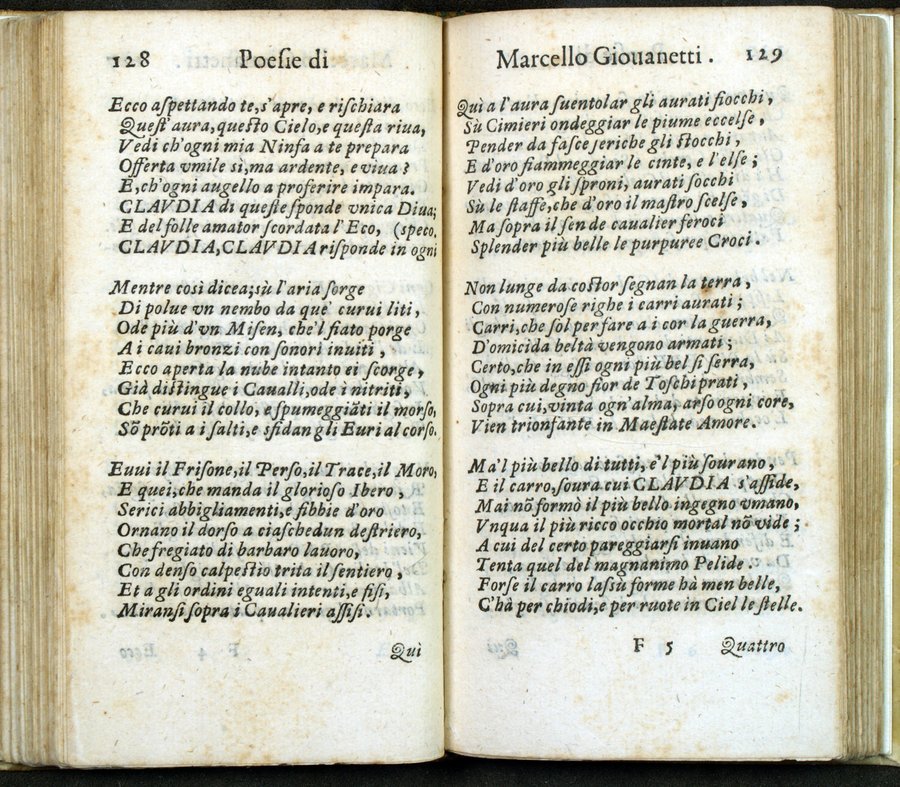 128 Poeſie di
Ecco aſpettando te,s'apre, e riſchiara
Queſt'aura,queſto Cielo,e queſta riua,
Vedi ch'ogni mia Ninfa a te prepara
Offerta vmile sì,ma ardente, e viua?
E,ch'ogni augello a proferire impara.
CLAVDIA di queſte ſponde vnica Diua;
E del folle amator ſcordata l'Eco, (ſpeco.
CLAVDIA,CLAVDIA riſponde in ogni
Mentre così dicea;sù l'aria ſorge
Di polue vn nembo da que' curui liti,
Ode più d'vn Miſen, che'l fiato porge
A i caui bronzi con ſonori inuiti,
Ecco aperta la nube intanto ei ſcorge,
Già diſtingue i Caualli,ode i nitriti,
Che curui il collo, e ſpumeggiāti il morſo,
Sō prōti a i ſalti,e sfidan gli Euri al corſo.
Euui il Friſone,il Perſo,il Trace,il Moro,
E quei,che manda il glorioſo Ibero,
Serici abbigliamenti,e fibbie d'oro
Ornano il dorſo a ciaſchedun deſtriero,
Che fregiato di barbaro lauoro,
Con denſo calpeſtio trita il ſentiero,
Et a gli ordini eguali intenti,e fiſi,
Miranſi ſopra i Caualieri aſſiſi.
Quì
Marcello Giouanetti. 129
Quì a l'aura ſuentolar gli aurati fiocchi,
Sù Cimieri ondeggiar le piume eccelſe,
Pender da faſce ſeriche gli ſtocchi,
E d'oro fiammeggiar le cinte, e l'elſe;
Vedi d'oro gli ſproni, aurati ſocchi
Sù le ſtaffe,che d'oro il maſtro ſcelſe,
Ma ſopra il ſen de caualier feroci
Splender più belle le purpuree Croci.
Non lunge da coſtor ſegnan la terra,
Con numeroſe righe i carri aurati;
Carri,che ſol per fare a i cor la guerra,
D'omicida beltà vengono armati;
Certo,che in eſſi ogni più bel ſi ſerra,
Ogni più degno fior de Toſchi prati,
Sopra cui,vinta ogn'alma, arſo ogni core,
Vien trionfante in Maeſtate Amore.
Ma'l più bello di tutti, e'l più ſourano,
E il carro,ſoura cui CLAVDIA s'aſſide,
Mai nō formò il più bello ingegno vmano,
Vnqua il più ricco occhio mortal nō vide;
A cui del certo pareggiarſi inuano
Tenta quel del magnanimo Pelide.
Forſe il carro laſsù forme hà men belle,
C'hà per chiodi,e per ruote in Ciel le ſtelle.
F 5 Quattro